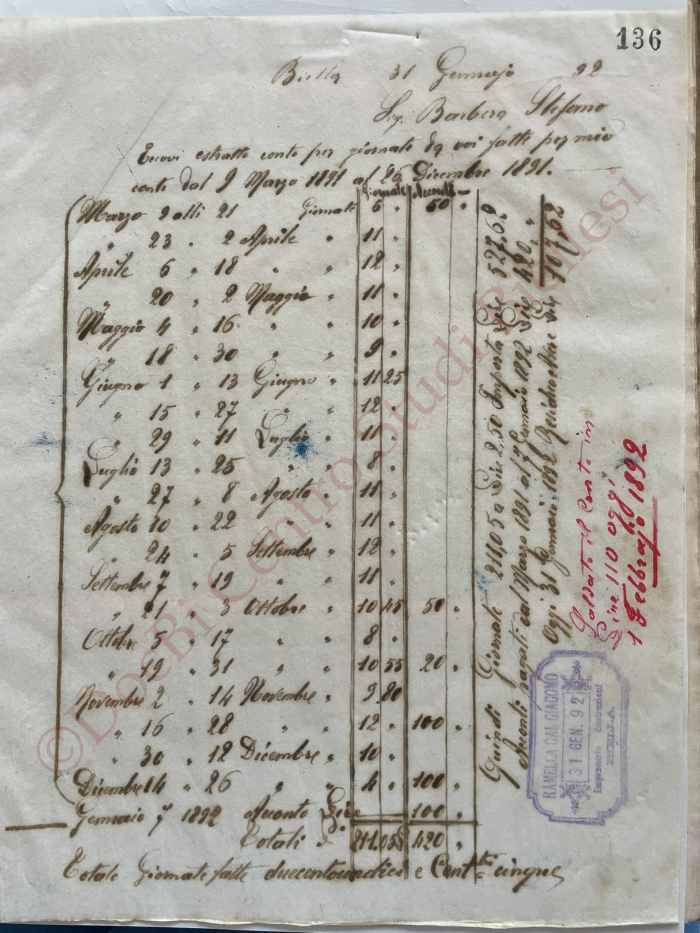 136
Biella 31 Gennajo 92
Sig. Barbera Stefano
Eccovi estratto conto per giornate da voi fatte per mio
conto dal 9 Marzo 1891 al 26 Dicembre 1891.
Giornate Acconti
Marzo 9 alli 21 Giornate 6 " 50 "
" 23 " 2 Aprile " 11 "
Aprile 6 " 18 " " 12 "
" 20 " 2 Maggio " 11 "
Maggio 4 " 16 " " 10 "
" 18 " 30 " " 9 "
Giugno 1 " 13 Giugno " 11 25
" 15 " 27 " " 12 "
" 29 " 11 Luglio " 11 "
Luglio 13 " 25 " " 8 "
" 27 " 8 Agosto " 11 "
Agosto 10 " 22 " " 11 "
" 24 " 5 Settembre " 12 "
Settembre 7 " 19 " " 11 "
" 21 " 3 Ottobre " 10 45 50 "
Ottobre 5 " 17 " " 8 "
" 19 " 31 " " 10 55 20 "
Novembre 2 " 14 Novembre " 9 80
" 16 " 28 " " 12 " 100 "
" 30 " 12 Dicembre " 10 "
Dicembre 14 " 26 " " 4 " 100 "
Gennaio 7 1892 Acconto Lire 100 "
Totali 211.05 420 "
Totale Giornate fatte duecentoundici e Centmi cinque
Quindi Giornate 211,05 a Lire 2.50 Importa Lire 527,62
Acconti pagati dal Marzo 1891 al 7 Gennaio 1892 Lire 420, "
Oggi 31 Gennaio 1892 Lire 107,62
Saldato il Conto in
Lire 110 oggi
1 Febbrajo 1892
RAMELLA GAL GIACOMO
31 GEN. 92
Impresario Costruzioni
BIELLA
©DocBi Centro Studi Biellesi